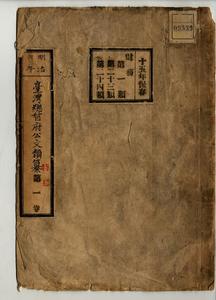 十五年保存
財務
第一類
第二十三類
第二十四類
明治
臺灣總督府公文類纂
第一卷